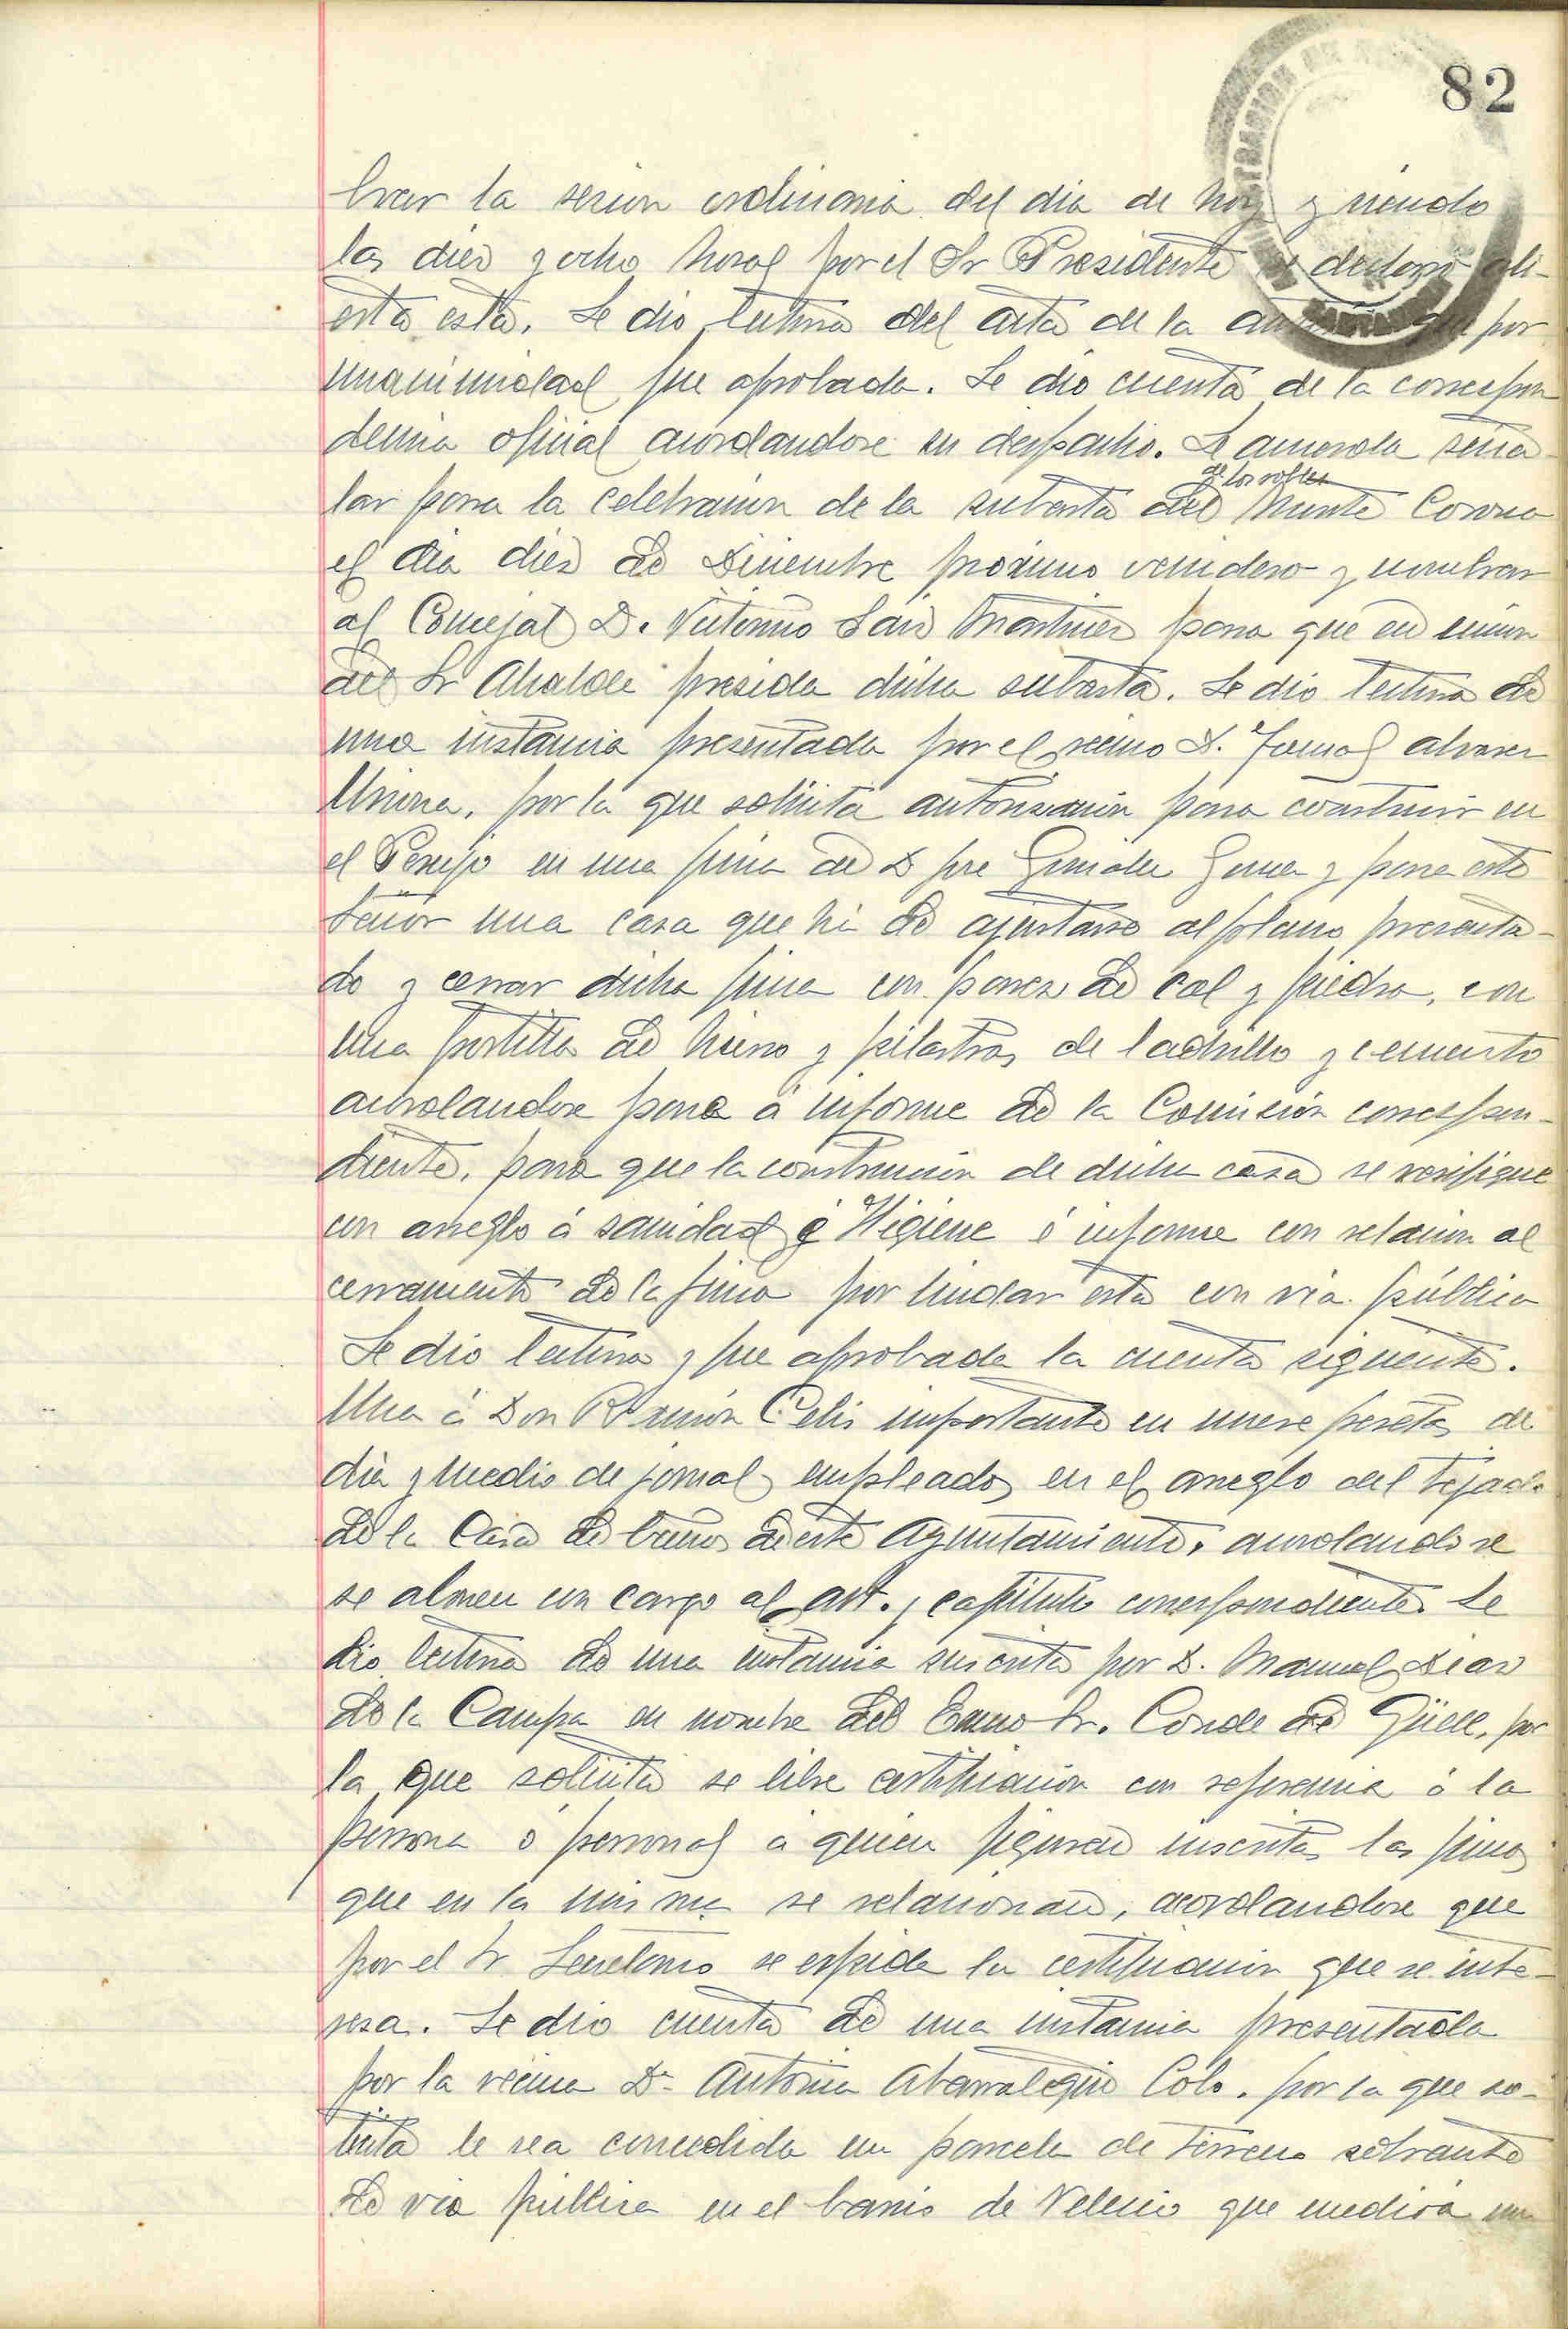 82
brar la sesion ordinaria del dia de hoy y siendo
las diez y ocho horas por el Sr Presidente se declaró abi-
erta esta. Se dio lectura del acta de la anterior que por
unanimidad fue aprobada. Se dio cuenta de la correspon
dencia oficial acordandose su despacho. Se acuerda seña
de los
lar para la celebracion de la subasta del Monte Corona
el dia diez de Diciembre próximo venidero y nombrar
al Concejal D. Victorino San Martinez para que en union
del Sr Alcalde presida dicha subasta. Se dio lectura de
una instancia presentada por el vecino D. Tomas alvarez
por la que solicita autorizacion para construir en
el en una finca de D José Gonzalez y para este
Señor una casa que há de ajustarse al plano presenta-
do y cerrar dicha finca con pared de cal y piedra, con
una portilla de hierro y pilastras de ladrillo y cemento
acordandose pase á informe de la Comisión correspon-
diente, para que la construccion de dicha casa se verifique
con arreglo á sanidad é Higiene é informe con relacion al
cerramiento de la finca por lindar esta con via pública
Se dio lectura y fue aprobada la cuenta siguiente.
Una á Don Ramón Celis importante en nueve pesetas de
dia y medio de jornal empleados en el arreglo del tejado
de la Casa de de este Ayuntamiento, acordandose
se abonen con cargo al art. y capitulo correspondiente. Se
dio lectura de una instancia suscrita por D. Manuel Diaz
de la Campa en nombre del Excmo Sr. Conde de Güell, por
la que solicita se libre certificacion con referencia á la
persona ó personas á quien figuran inscritas las fincas
que en la misma se relacionan, acordandose que
por el Sr Secretario se expida la certificacion que se inte-
resa. Se dio cuenta de una instancia presentada
por la vecina Dª Antonia Abarrategui Colo. por la que so-
licita le sea concedida una parcela de terreno sobrante
de via pública en el barrio de Velecio que medirá